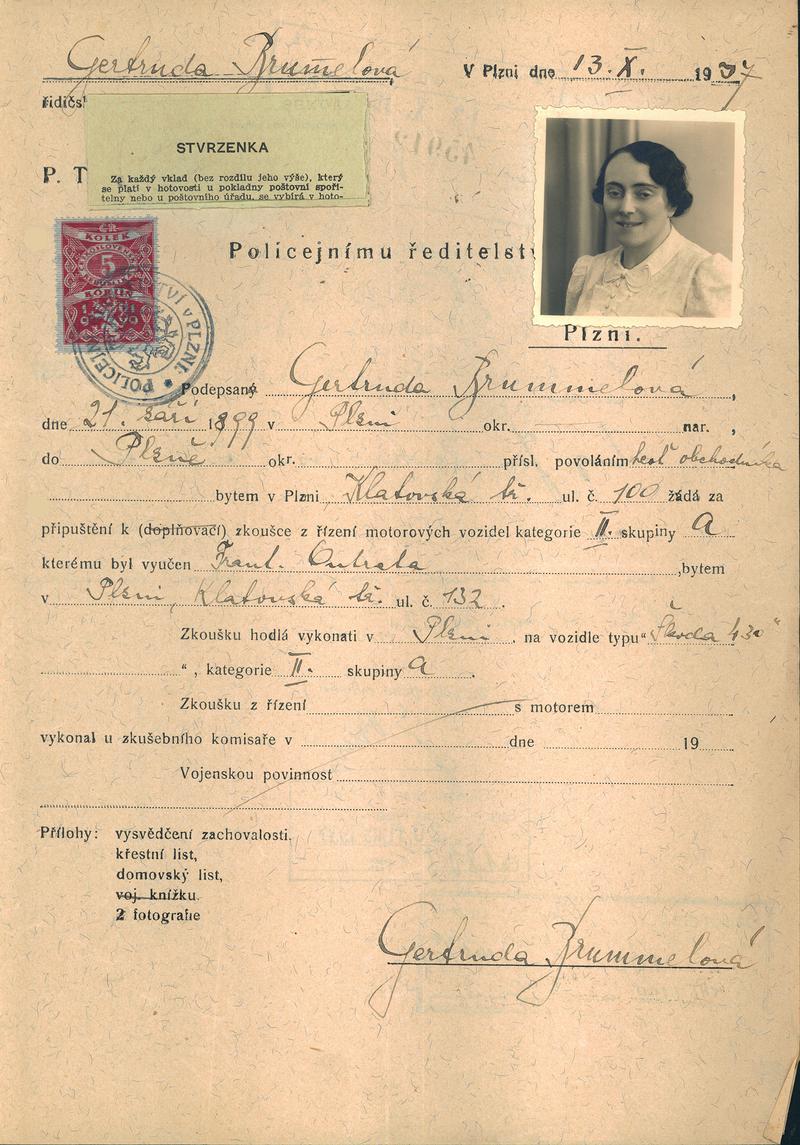 Gertruda Brumelová
V Plzni dne 13. X. 1937
řidičs
STVRZENKA
P. T
Za každý vklad (bez rozdílu jeho výše), který
se platí v hotovosti u pokladny poštovní spoři-
telny nebo u poštovního úřadu, se vybírá v hoto-
ČR
KOLEK
5
Policejnímu ředitelstv
Plzni.
POLICEJN TVÍ V PLZNI
Podepsaný Gertruda Brummelová,
dne 21. září 1899 v Plzni okr. nar. ,
do Plzně okr. přísl. povoláním choť obchodníka
bytem v Plzni Klatovská tř. ul. č. 100 žádá za
připuštění k (doplňovací) zkoušce z řízení motorových vozidel kategorie II. skupiny A
kterému byl vyučen Frant. Outrata ,bytem
v Plzni, Klatovská tř. ul. č. 132.
Zkoušku hodlá vykonati v Plzni , na vozidle typu "Škoda 430"
" , kategorie II. skupiny A .
Zkoušku z řízení s motorem
vykonal u zkušebního komisaře v dne 19
Vojenskou povinnost
Přílohy: vysvědčení zachovalosti,
křestní list,
domovský list,
voj. knížku.
2 fotografie
Gertruda Brummelová